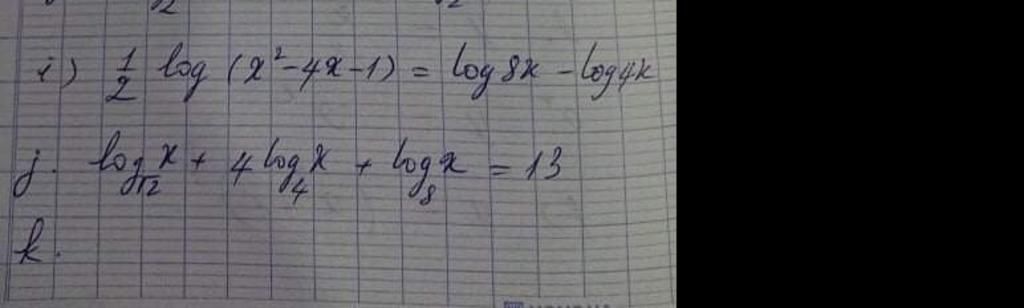 i) 1/2 log (x²-4x-1) = log 8x - log 4x
j. log_√2 x + 4 log_4 x + log_8 x = 13
k.